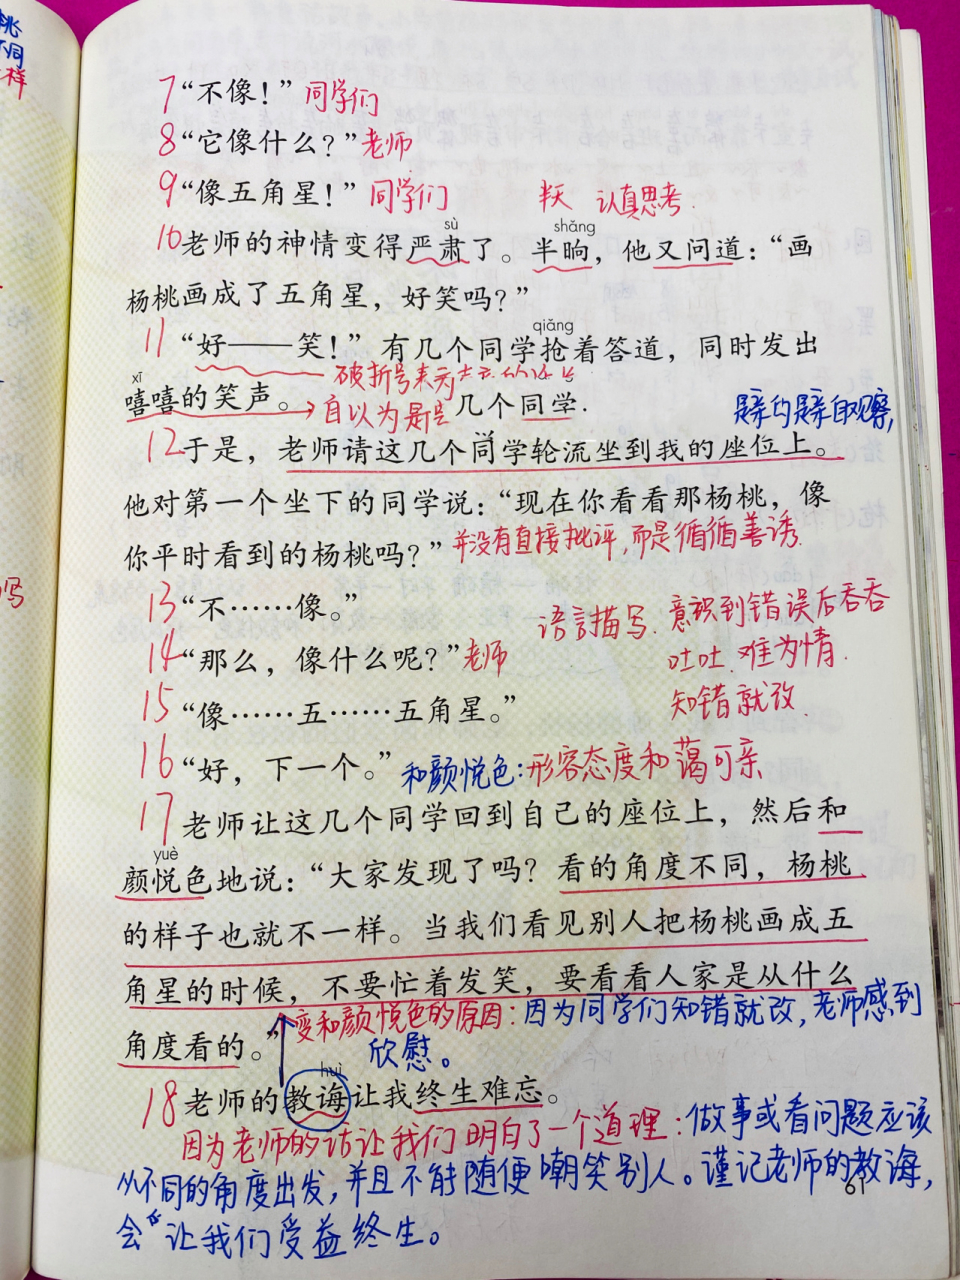 桃
不同
样
7 “不像！” 同学们
8 “它像什么？” 老师
9 “像五角星！” 同学们 半天 认真思考.
sù shǎng
10 老师的神情变得严肃了。半晌，他又问道：“画
杨桃画成了五角星，好笑吗？”
qiǎng
11 “好——笑！”有几个同学抢着答道，同时发出
xī
破折号表示
嘻嘻的笑声。→自以为是 几个同学.
12 于是，老师请这几个同学轮流坐到我的座位上。
他对第一个坐下的同学说：“现在你看看那杨桃，像
你平时看到的杨桃吗？” 并没有直接批评,而是循循善诱.
13 “不……像。” 语言描写. 意识到错误后吞吞
14 “那么，像什么呢？” 老师 吐吐. 难为情.
15 “像……五……五角星。” 知错就改.
16 “好，下一个。” 和颜悦色:形容态度和蔼可亲
17 老师让这几个同学回到自己的座位上，然后和
yuè
颜悦色地说：“大家发现了吗？看的角度不同，杨桃
的样子也就不一样。当我们看见别人把杨桃画成五
角星的时候，不要忙着发笑，要看看人家是从什么
角度看的。” 变和颜悦色的原因: 因为同学们知错就改, 老师感到
欣慰。
huì
18 老师的教诲让我终生难忘。
因为老师的话让我们明白了一个道理: 做事或看问题应该
从不同的角度出发, 并且不能随便嘲笑别人。谨记老师的教诲,
会“让我们受益终生。
61
写